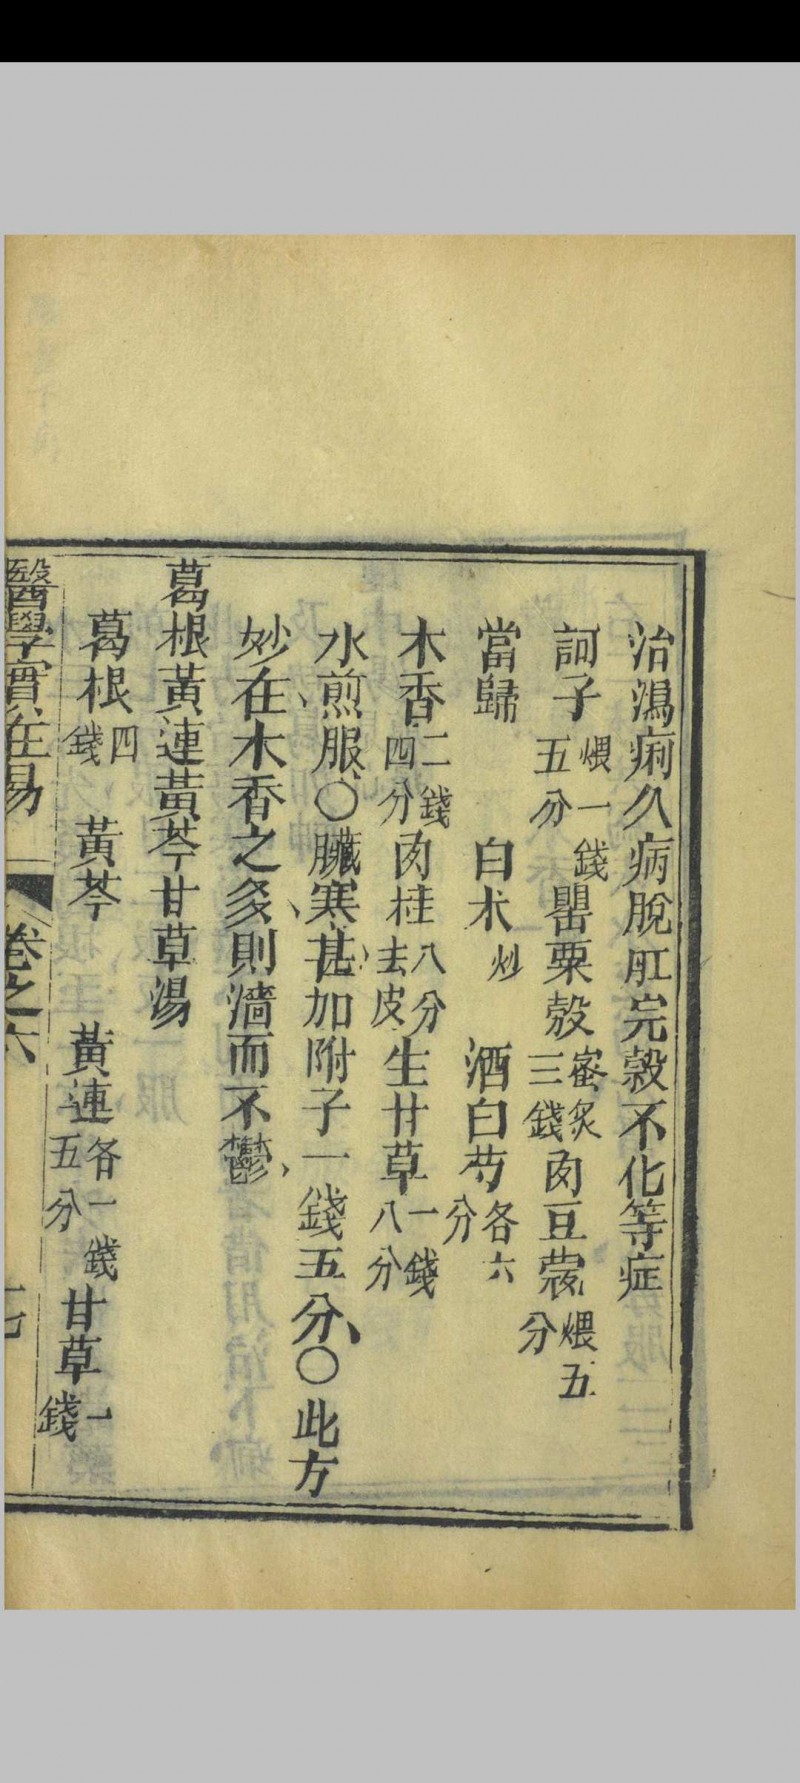 治瀉痢久病脫肛完穀不化等症
訶子煨一錢五分罌粟殼蜜炙三錢肉豆蔻煨五分
當歸 白朮炒 酒白芍各六分
木香二錢四分肉桂八分去皮生甘草一錢八分
水煎服〇臟寒甚加附子一錢五分〇此方
妙在木香之多則濇而不鬱
葛根黃連黃芩甘草湯
葛根四錢 黃芩 黃連各一錢五分甘草一錢
醫學實在易 卷之六